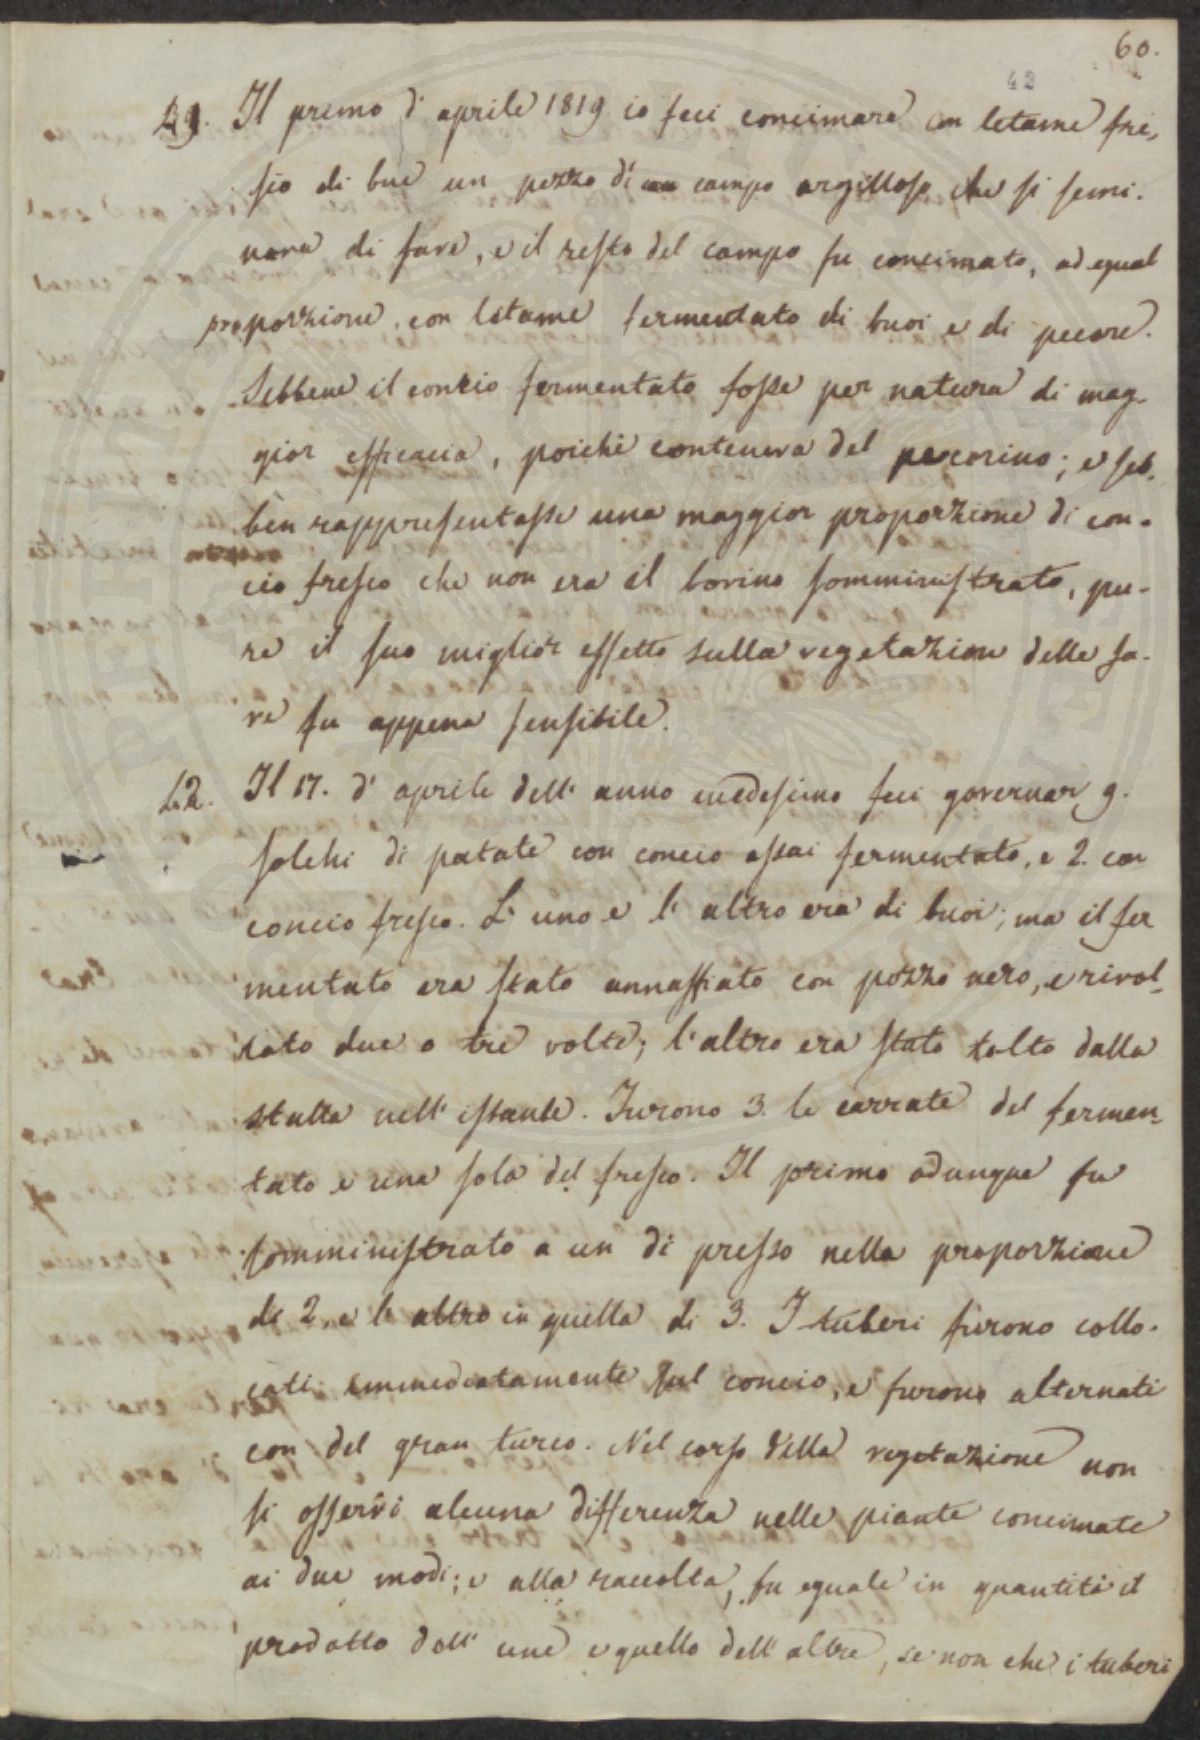 60.
42
49. Il primo d' aprile 1819 io feci concimare con letame fre,
sco di bue un pezzo di campo argilloso che si semi.
nava di fave, e il resto del campo fu concimato, ad egual
proporzione, con letame fermentato di buoi e di pecore.
Sebbene il concio fermentato fosse per natura di mag-
gior efficacia, poichè conteneva del pecorino; e seb.
ben rappresentasse una maggior proporzione di con-
cio fresco che non era il bovino somministrato, pu-
re il suo miglior effetto sulla vegetazione delle fa-
ve fu appena sensibile.
42. Il 17. d' aprile dell' anno medesimo feci governar 9.
solchi di patate con concio assai fermentato, e 2. con
concio fresco. L' uno e l' altro era di buoi; ma il fer
mentato era stato annaffiato con pozzo nero, e rivol-
tato due o tre volte; l'altro era stato tolto dalla
stalla nell' istante. Furono 3. le carrate del fermen-
tato e una sola del fresco. Il primo adunque fu
somministrato a un di presso nella proporzione
di 2. e l' altro in quella di 3. I tuberi furono collo-
cati immediatamente sul concio, e furono alternati
con del gran turco. Nel corso della vegetazione non
si osservò alcuna differenza nelle piante concimate
ai due modi; e alla raccolta, fu eguale in quantità il
prodotto dell' une e quello dell' altre, se non che i tuberi